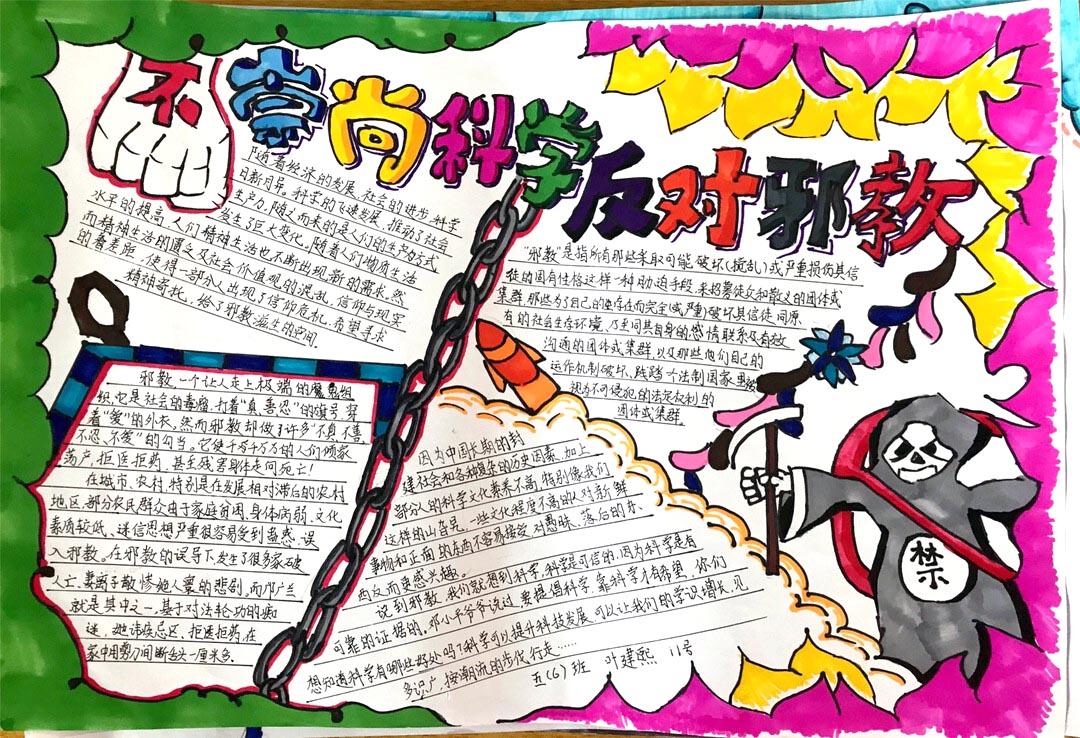 不
崇尚科学反对邪教
随着经济的发展,社会的进步,科学
日新月异。科学的飞速发展,推动了社会
生产力,随之而来的是人们的生产方式
发生了巨大变化。随着人们物质生活
水平的提高,人们精神生活也不断出现新的需求。然
而精神生活的匮乏及社会价值观的混乱,信仰与现实
的着差距,使得一部分人出现了信仰危机,希望寻求
精神寄托,给了邪教滋生的空间。
"邪教"是指所有那些采取可能破坏(搅乱)或严重损伤其信
徒的固有性格这样一种胁迫手段,来招募徒众和散义的团体或
集群,那些为了自己的生存在而完全(或严重)破坏其信徒同原
有的社会生存环境,乃至同其自身的感情联系及有效
沟通的团体或集群,以及那些他们自己的
运作机制破坏、践踏一个法制国家里被
视为不可侵犯的法定权利的
团体或集群。
邪教,一个让人走上极端的魔鬼组
织,它是社会的毒瘤,打着"真、善、忍"的旗号,穿
着"爱"的外衣,然而邪教却做了许多"不真、不善、
不忍、不爱"的勾当。它使千千万万的人们倾家
荡产,拒医拒药,甚至残害身体走向死亡!
在城市、农村,特别是在发展相对滞后的农村
地区,部分农民群众由于家庭贫困,身体病弱、文化
素质较低、迷信思想严重很容易受到蛊惑、误
入邪教。在邪教的误导下发生了很多家破
人亡、妻离子散,惨绝人寰的悲剧,而邝广兰
就是其中之一,基于对法轮功的痴
迷,她讳疾忌医,拒医拒药,在
家中用剪刀剪断舌头一厘米多.
因为中国长期的封
建社会和各种复杂的历史因素,加上
部分人的科学文化素养不高,特别像我们
这样的山旮旯,一些文化程度不高的人对新鲜
事物和正面的东西不容易接受,对愚昧、落后的东
西反而更感兴趣。
说到邪教,我们就想到科学,科学是可信的,因为科学是有
可靠的证据的。邓小平爷爷说过,要提倡科学,靠科学才有希望,你们
想知道科学有哪些好处吗?科学可以提升科技发展,可以让我们的学识增长,见
多识广,按潮流的步伐行走……
五(6)班 叶建熙 11号
禁